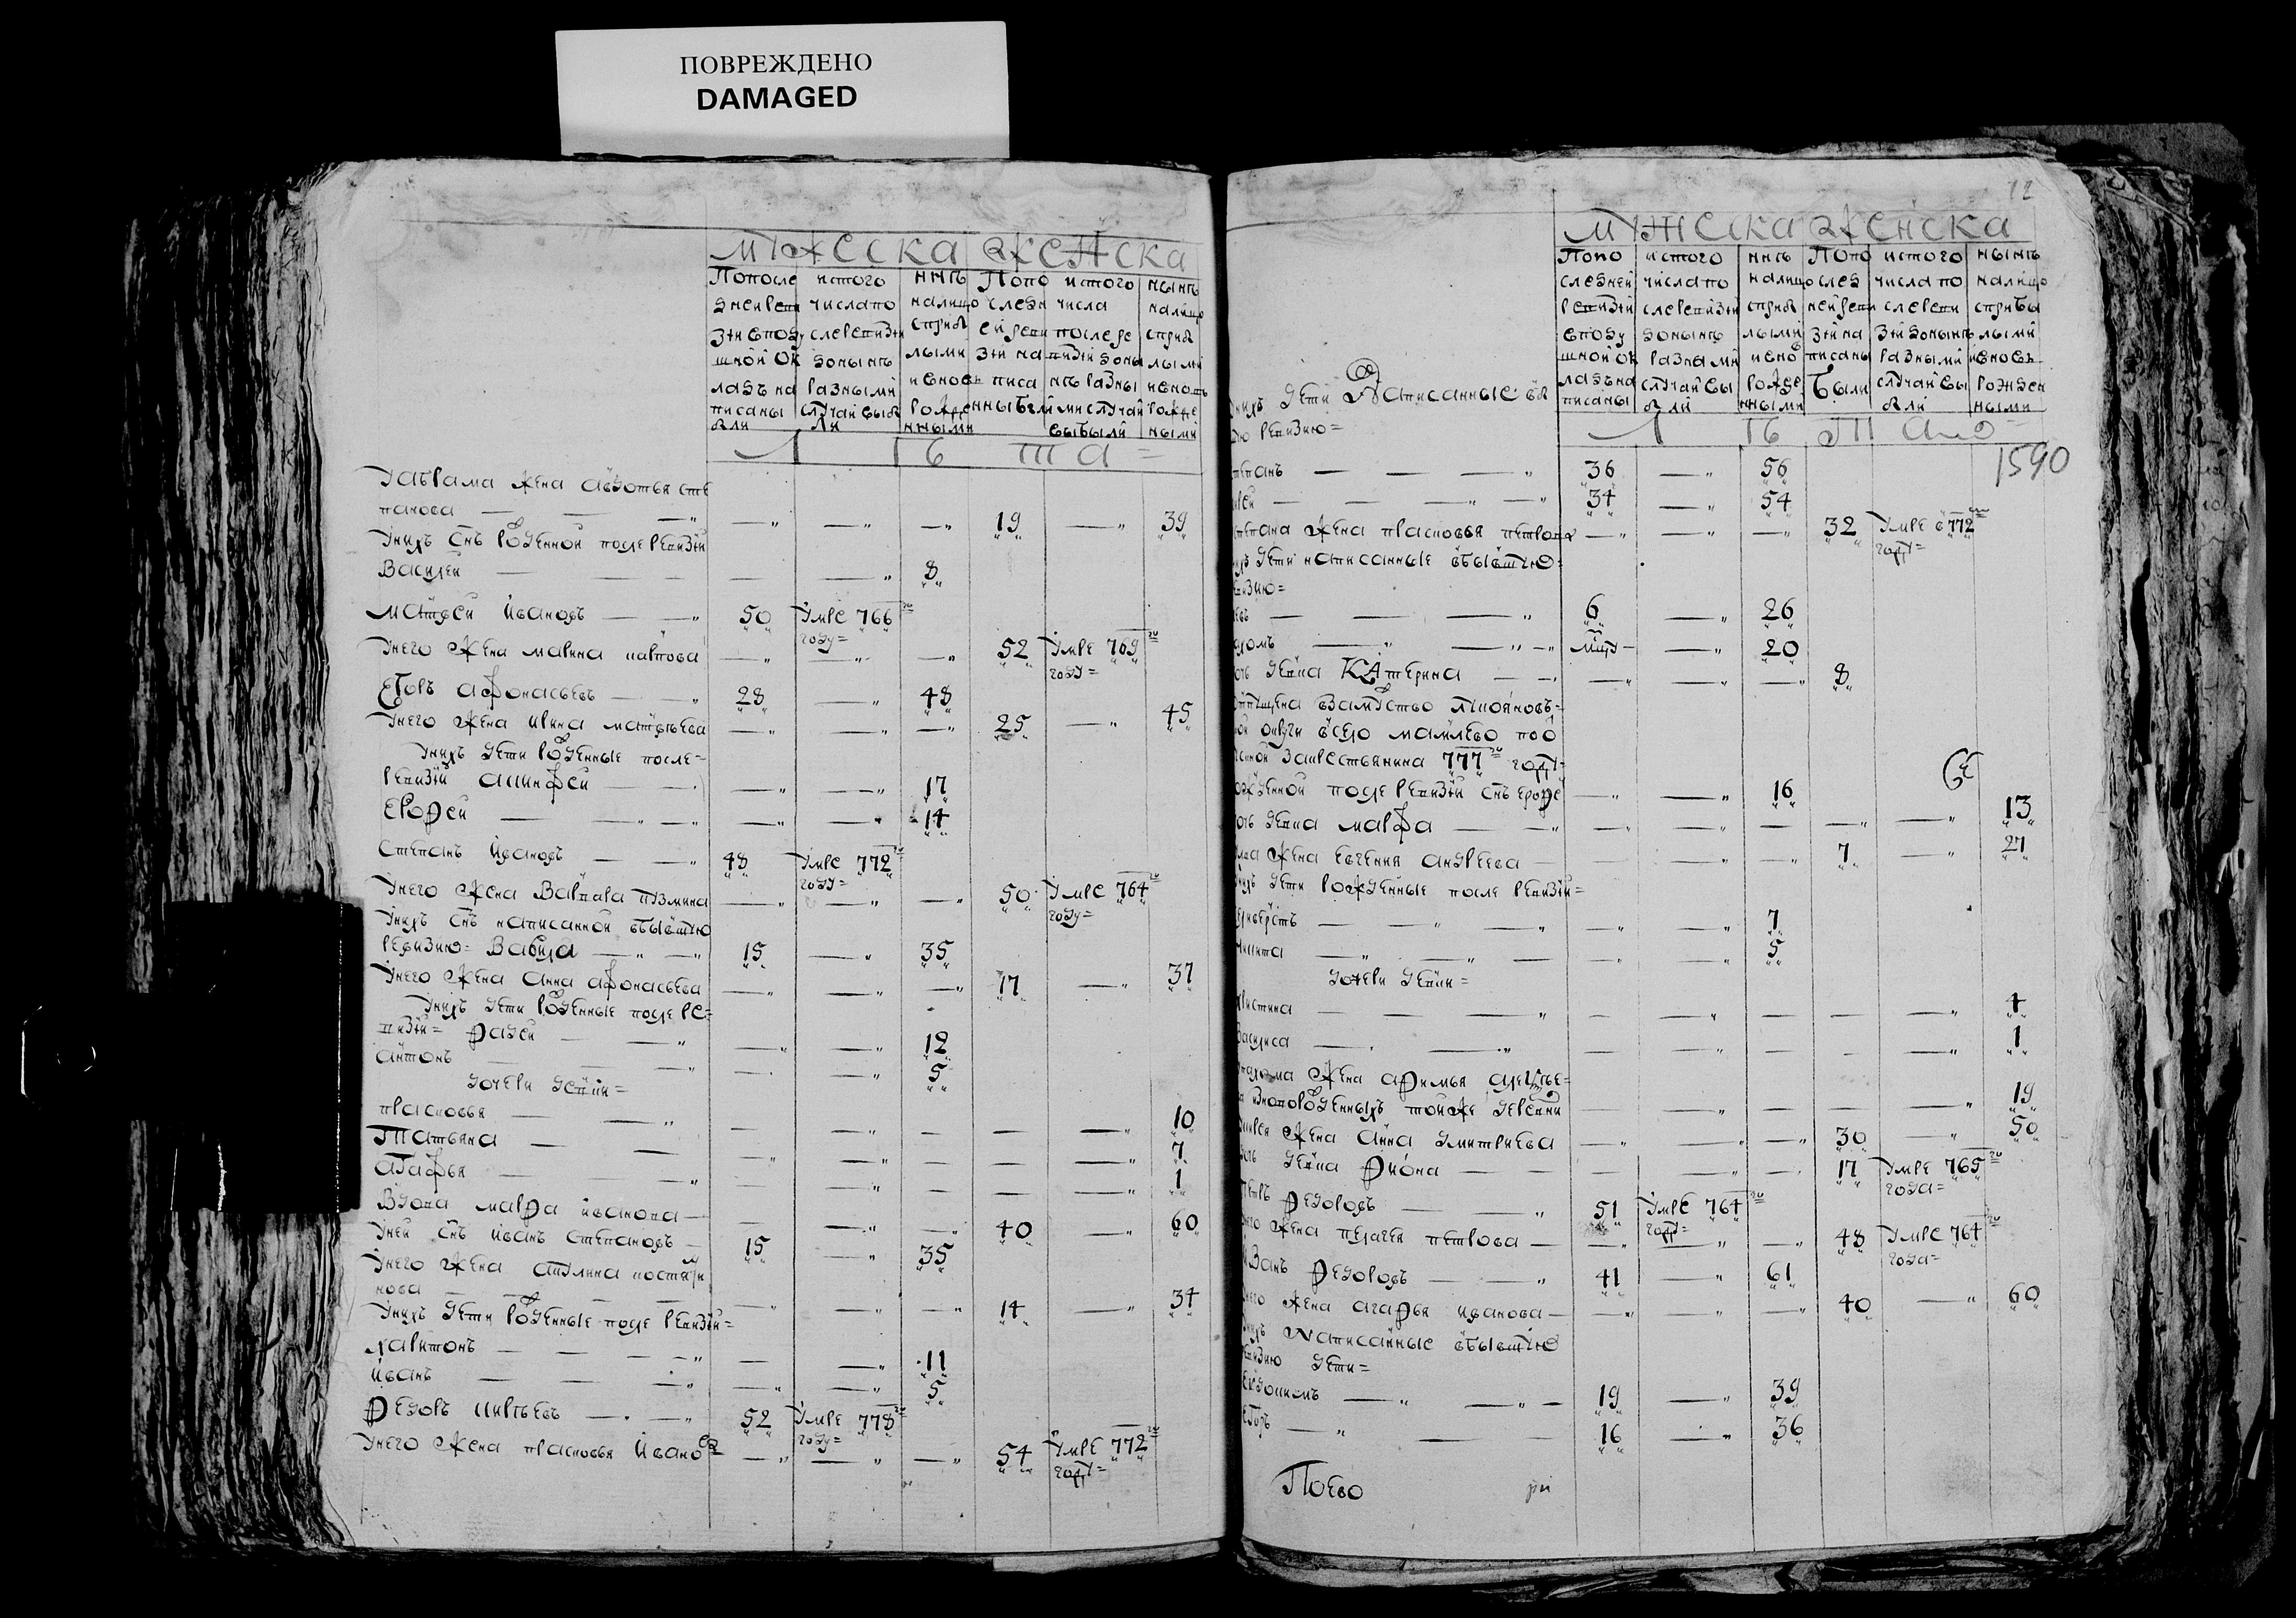 ПОВРЕЖДЕНО
DAMAGED
мужеска женска
Попосле
дней реви
зїи вподу
шной ок
ладъ на
писаны
были
истого
числа по
слеревизїи
донынѣ
разными
случаи выбы
ли
ннѣ
налицо
сприбы
лыми
ивновь
рожде
нными
Попо
следн
ей реви
зїи на
писа
ны были
истого
числа
после ре
визїи доны
нѣ разны
ми случаи
выбыли
нынѣ
налицо
сприбы
лыми
ивновь
рожде
ными
лѣта =
У аврама жена авдотья сте
панова 19 39
Унихъ снъ рожденной после ревизїи
Василей 8
Матвеи Ивановъ 50 Умре 766 го
году =
Унего жена марина карпова 52 Умре 769 го
году =
Егоръ афонасьевъ 28 48
Унего жена ирина матфѣева 25 45
Унихъ дети рожденные после =
ревизїи аминфеи 17
Ерофеи 14
Степанъ Ивановъ 48 Умре 772 го
году =
Унего жена Варвара кузмина 50 Умре 764 го
году =
Унихъ снъ написанной вбывшую
ревизию = Вавила 15 35
Унего жена анна афонасьева 17 37
Унихъ дети рожденные после ре =
визїи = фадеи 12
антонъ 5
дочери девки =
прасковья 10
Татьяна 7
агафья 1
Вдова марфа иванова 40 60
Уней снъ иванъ степановъ 15 35
Унего жена акулина костянти
нова 14 34
Унихъ дети рожденные после ревизїи =
харитонъ 11
иванъ 5
федоръ никитьевъ 52 Умре 778 го
году =
Унего жена прасковья иванова 54 Умре 772 го
году =
12
мужеска женска
Попо
следней
ревизїи
вподу
шной ок
ладъ на
писаны
истого
числа по
слеревизїи
донынѣ
разными
случаи вы
были
ннѣ
налицо
сприбы
лыми
ивновь
рожде
нными
Попо
след
ней реви
зїи на
писаны
были
истого
числа по
слереви
зїи донынѣ
разными
случаи вы
были
нынѣ
налицо
сприбы
лыми
ивновь
рожден
ными
лѣта
1590
унихъ дети написанные вбы
ревизию =
степанъ 36 56
34 54
степана жена прасковья петрова 32 Умре в 772 м
году =
дети написанные вбывшую =
ревизию =
6 26
20
девка Катерина 8
взамужство
округи всело
777 го году =
рожденной после ревизїи снъ ерофе 16
дочь девка марфа 13
жена евгения андреева 7 27
дети рожденные после ревизїи =
7
никита 5
дочери девки =
христина 4
Васлиса 1
жена афимья
рожденныхъ тойже деревни 19
жена анна дмитриева 30 50
дочь девка фиона 17 Умре 765 го
года =
федоровъ 51 Умре 764 го
году =
жена пелагея петрова 48 Умре 764 го
года =
Иванъ федоровъ 41 61
жена агафья иванова 40 60
Написанные вбывшую
ревизию дети =
Евдокимъ 19 39
егоръ 16 36
Поево
ри